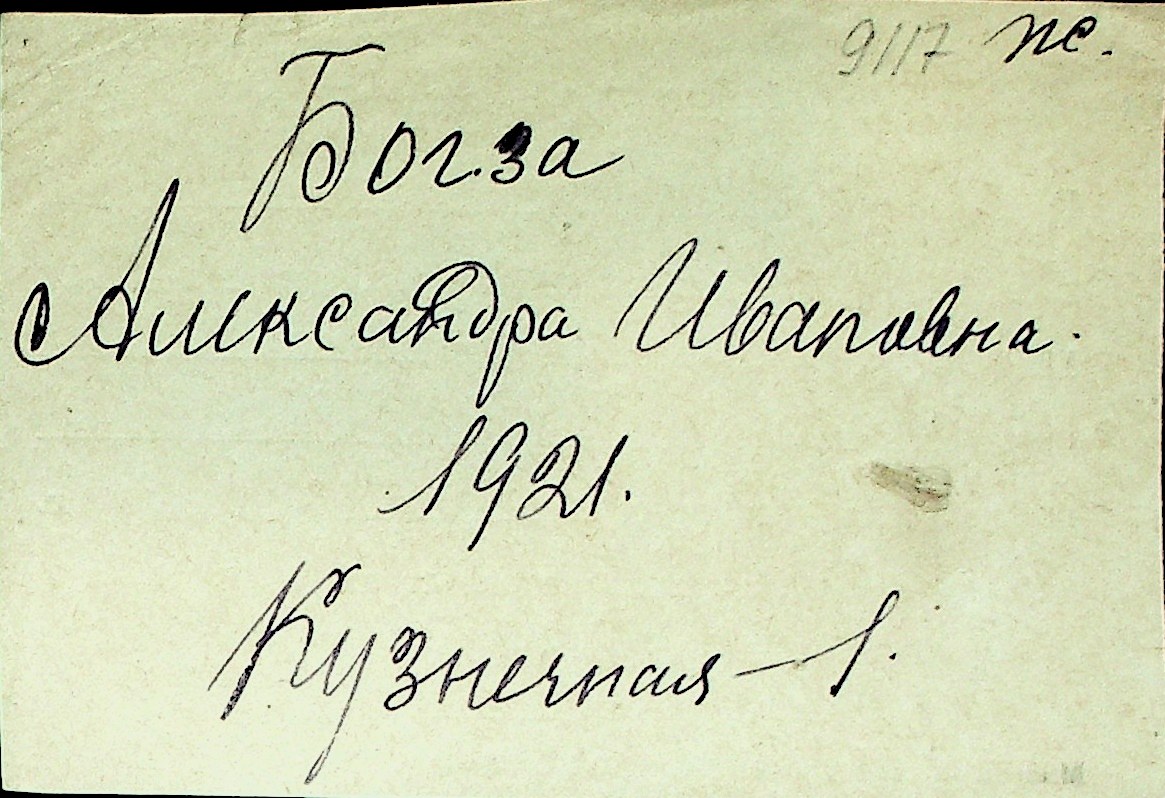 9117 пс.
Богза
Александра Ивановна.
1921.
Кузнечная – 1.